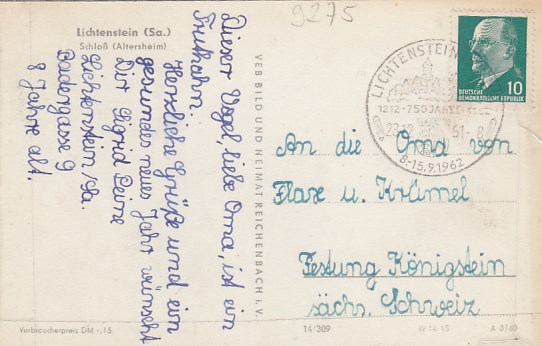 9275
Lichtenstein (Sa.)
Schloß (Altersheim)
Dieser Vogel, liebe Oma, ist ein
Truthahn.
Herzliche Grüße und ein
gesundes neues Jahr wünscht
Dir Sigrid
Lichtenstein/Sa.
Badergasse 9
8 Jahre alt.
VEB BILD UND HEIMAT REICHENBACH I. V.
Verbraucherpreis DM -.15
LICHTENSTEIN
1212 · 750 JAHRE
61-8
8.-15.9.1962
DEUTSCHE
DEMOKRATISCHE REPUBLIK
10
An die Oma von
Flaxe u. Krümel
Festung Königstein
sächs. Schweiz
14/309